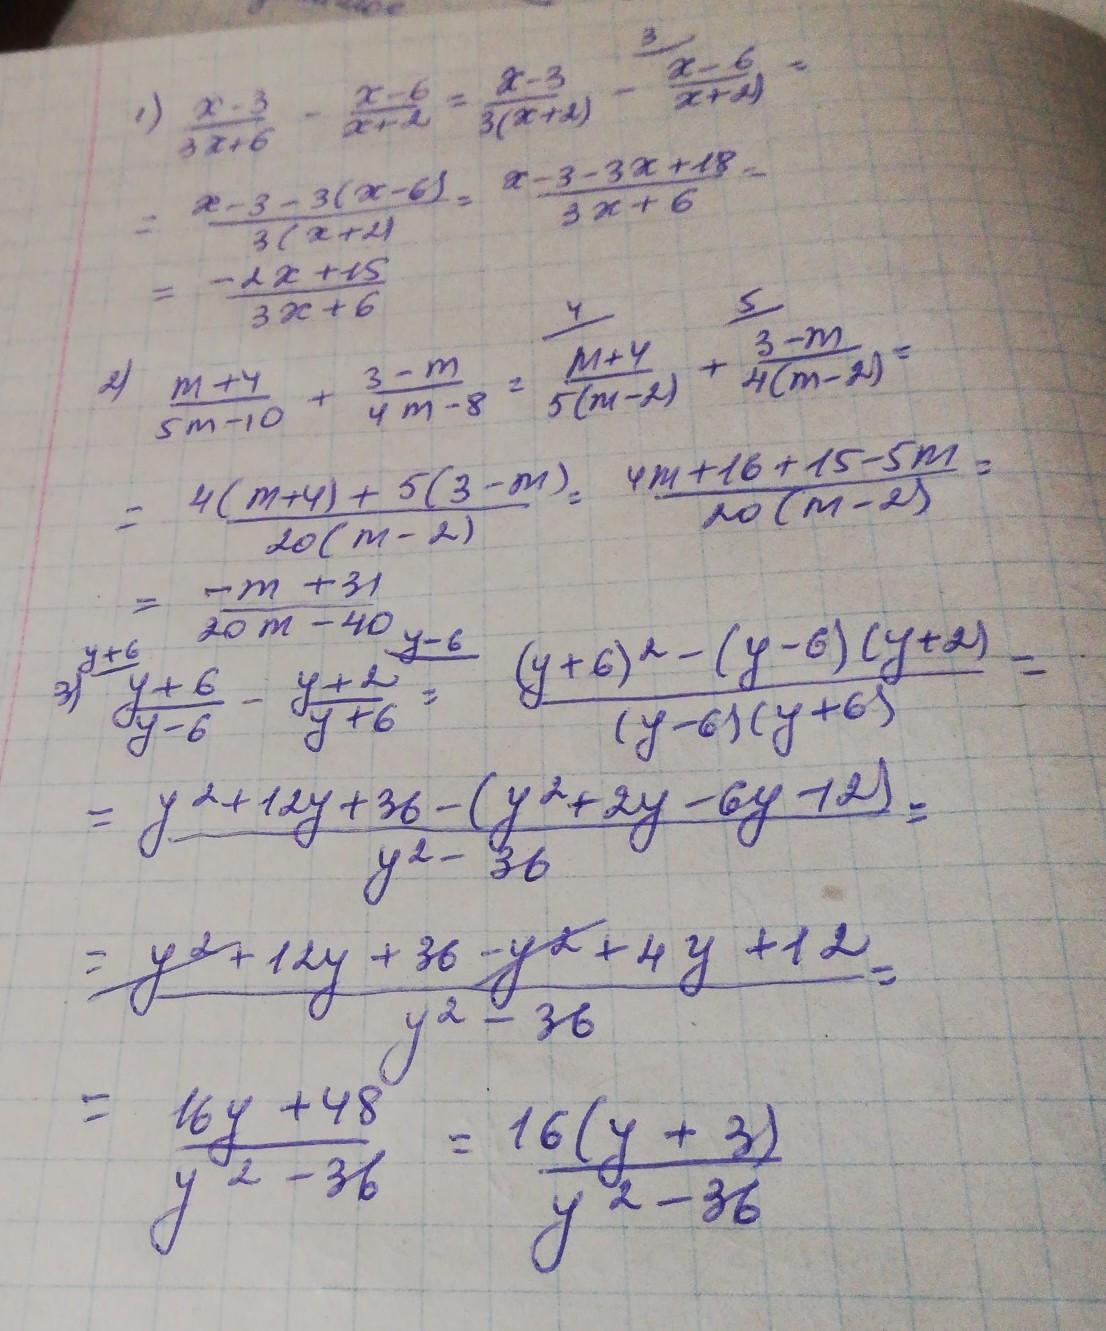 1) (x-3)/(3x+6) - (x-6)/(x+2) = (x-3)/(3(x+2)) - 3/ (x-6)/(x+2) =
= (x-3-3(x-6))/(3(x+2)) = (x-3-3x+18)/(3x+6) =
= (-2x+15)/(3x+6)
2) (m+4)/(5m-10) + (3-m)/(4m-8) = 4/ (m+4)/(5(m-2)) + 5/ (3-m)/(4(m-2)) =
= (4(m+4)+5(3-m))/(20(m-2)) = (4m+16+15-5m)/(20(m-2)) =
= (-m+31)/(20m-40)
3) y+6/ (y+6)/(y-6) - (y+2)/(y+6) y-6/ = ((y+6)²-(y-6)(y+2))/((y-6)(y+6)) =
= (y²+12y+36-(y²+2y-6y-12))/(y²-36) =
= (y²+12y+36-y²+4y+12)/(y²-36) =
= (16y+48)/(y²-36) = (16(y+3))/(y²-36)